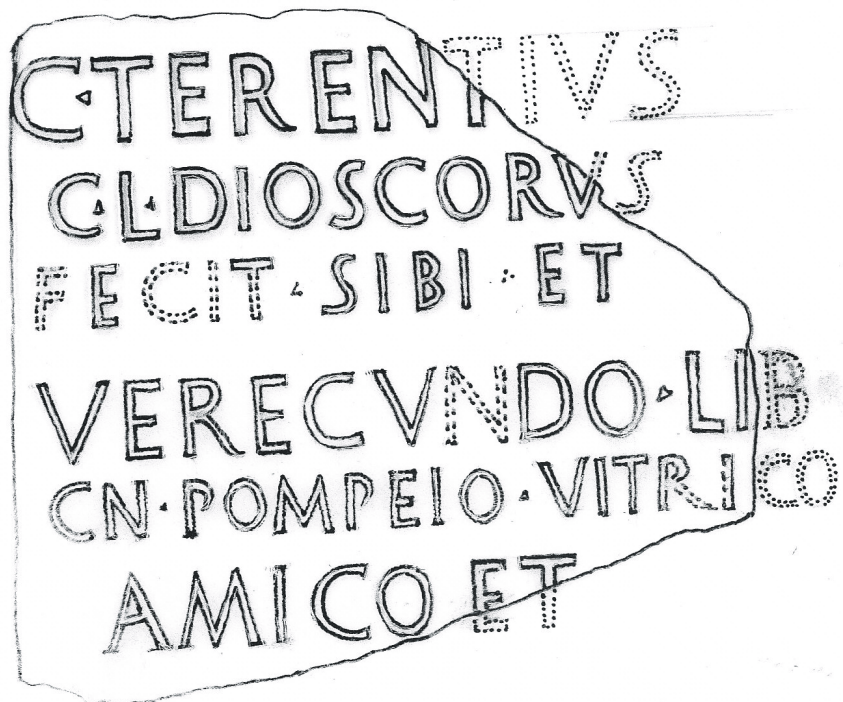 C·TERENTIVS
C·L·DIOSCORVS
FECIT·SIBI·ET
VERECVNDO·LIB
CN·POMPEIO·VITRICO
AMICO ET